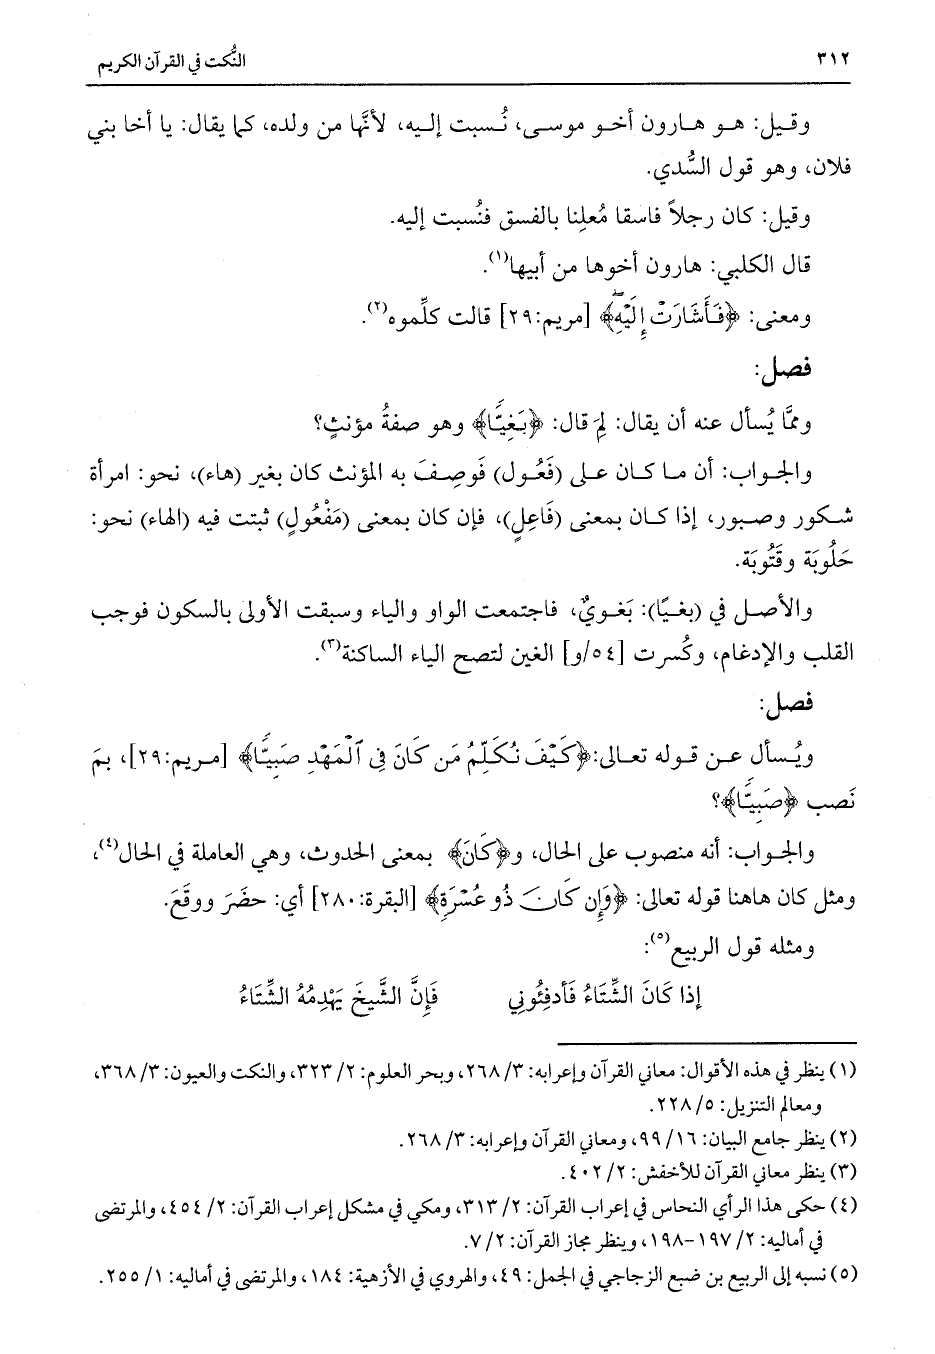 ٣١٢ النُّكت في القرآن الكريم
وقيل: هو هارون أخو موسى، نُسبت إليه، لأنَّها من ولده، كما يقال: يا أخا بني
فلان، وهو قول السُّدي.
وقيل: كان رجلاً فاسقا مُعلِنا بالفسق فنُسبت إليه.
قال الكلبي: هارون أخوها من أبيها(١).
ومعنى: ﴿فَأَشَارَتْ إِلَيْهِۖ﴾ [مريم:٢٩] قالت كلِّموه(٢).
فصل:
وممَّا يُسأل عنه أن يقال: لِمَ قال: ﴿بَغِيًّا﴾ وهو صفةُ مؤنثٍ؟
والجواب: أن ما كان على (فَعُول) فَوصِفَ به المؤنث كان بغير (هاء)، نحو: امرأة
شكور وصبور، إذا كان بمعنى (فَاعِلٍ)، فإن كان بمعنى (مَفْعُولٍ) ثبتت فيه (الهاء) نحو:
حَلُوبَة وقَتُوبَة.
والأصل في (بغيًا): بَغويٌ، فاجتمعت الواو والياء وسبقت الأولى بالسكون فوجب
القلب والإدغام، وكُسرت [٥٤/و] الغين لتصح الياء الساكنة(٣).
فصل:
ويُسأل عن قوله تعالى:﴿كَيْفَ نُكَلِّمُ مَن كَانَ فِي ٱلْمَهْدِ صَبِيًّا﴾ [مريم:٢٩]، بمَ
نَصب ﴿صَبِيًّا﴾؟
والجواب: أنه منصوب على الحال، و﴿كَانَ﴾ بمعنى الحدوث، وهي العاملة في الحال(٤)،
ومثل كان هاهنا قوله تعالى: ﴿وَإِن كَانَ ذُو عُسْرَةٍ﴾ [البقرة:٢٨٠] أي: حضَرَ ووقَعَ.
ومثله قول الربيع(٥):
إذا كَانَ الشِّتَاءُ فَأدفِئُوني فَإِنَّ الشَّيخَ يَهْدِمُهُ الشِّتَاءُ
(١) ينظر في هذه الأقوال: معاني القرآن وإعرابه: ٣/ ٢٦٨، وبحر العلوم: ٢/ ٣٢٣، والنكت والعيون: ٣/ ٣٦٨،
ومعالم التنزيل: ٥/ ٢٢٨.
(٢) ينظر جامع البيان: ١٦/ ٩٩، ومعاني القرآن وإعرابه: ٣/ ٢٦٨.
(٣) ينظر معاني القرآن للأخفش: ٢/ ٤٠٢.
(٤) حكى هذا الرأي النحاس في إعراب القرآن: ٢/ ٣١٣، ومكي في مشكل إعراب القرآن: ٢/ ٤٥٤، والمرتضى
في أماليه: ٢/ ١٩٧-١٩٨، وينظر مجاز القرآن: ٢/ ٧.
(٥) نسبه إلى الربيع بن ضبع الزجاجي في الجمل: ٤٩، والهروي في الأزهية: ١٨٤، والمرتضى في أماليه: ١/ ٢٥٥.